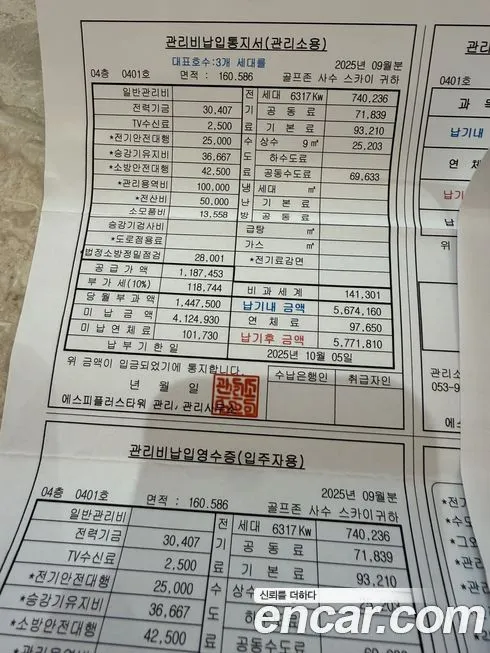 관리비납입통지서(관리소용)
대표호수:3개 세대를
2025년 09월분
04층 0401호 면적 : 160.586 골프존 사수 스카이 귀하
일반관리비 전기료 세대 6317Kw 740,236
전력기금 30,407 공동료 71,839
TV수신료 2,500 기본료 93,210
*전기안전대행 25,000 수도료 상수 9㎥ 25,203
*승강기유지비 36,667 하수도료
*소방안전대행 42,500 공동수도료 69,633
*관리용역비 100,000 냉난방 세대 ㎥
*전산비 50,000 기본료
소모품비 13,558 공동료
승강기검사비 급탕 ㎥
*도로점용료 가스 ㎥
법정소방정밀점검 28,001 *전기료감면
공급가액 1,187,453
부가세(10%) 118,744 비과세계 141,301
당월부과액 1,447,500 납기내 금액 5,674,160
미납금액 4,124,930 연체료 97,650
미납연체료 101,730 납기후 금액 5,771,810
납부기한일 2025년 10월 05일
위 금액이 입금되었기에 통지합니다.
년 월 일
수납은행인 취급자인
에스피플러스타워 관리사무소
관리비납입영수증(입주자용)
2025년 09월분
04층 0401호 면적 : 160.586 골프존 사수 스카이귀하
일반관리비 전기료 세대 6317Kw 740,236
전력기금 30,407 공동료 71,839
TV수신료 2,500 기본료 93,210
*전기안전대행 25,000 수도 상수
*승강기유지비 36,667 하수도료
*소방안전대행 42,500 공동수도료
과목
납기내
연체
납기후
위
관리
053-9
에스피
신뢰를 더하다
encar.com